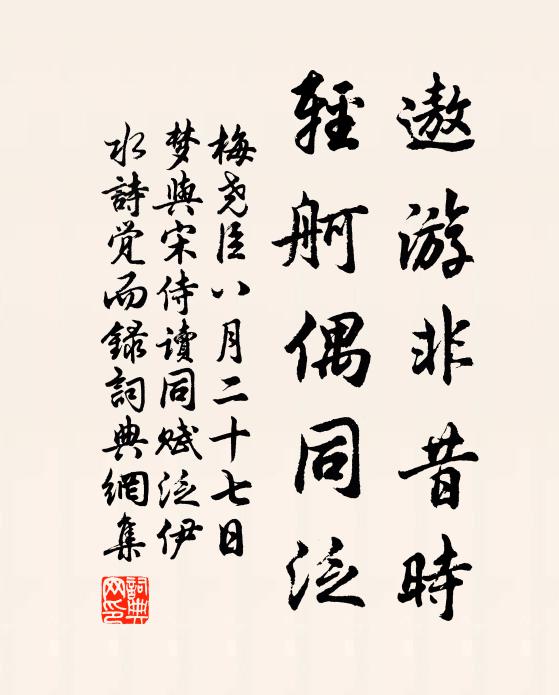 遨游非昔時
輕舸偶同泛
梅尧臣八月二十七日
梦與宋侍讀同赋泛伊
水詩觉而録詞典網集
詞典
网印